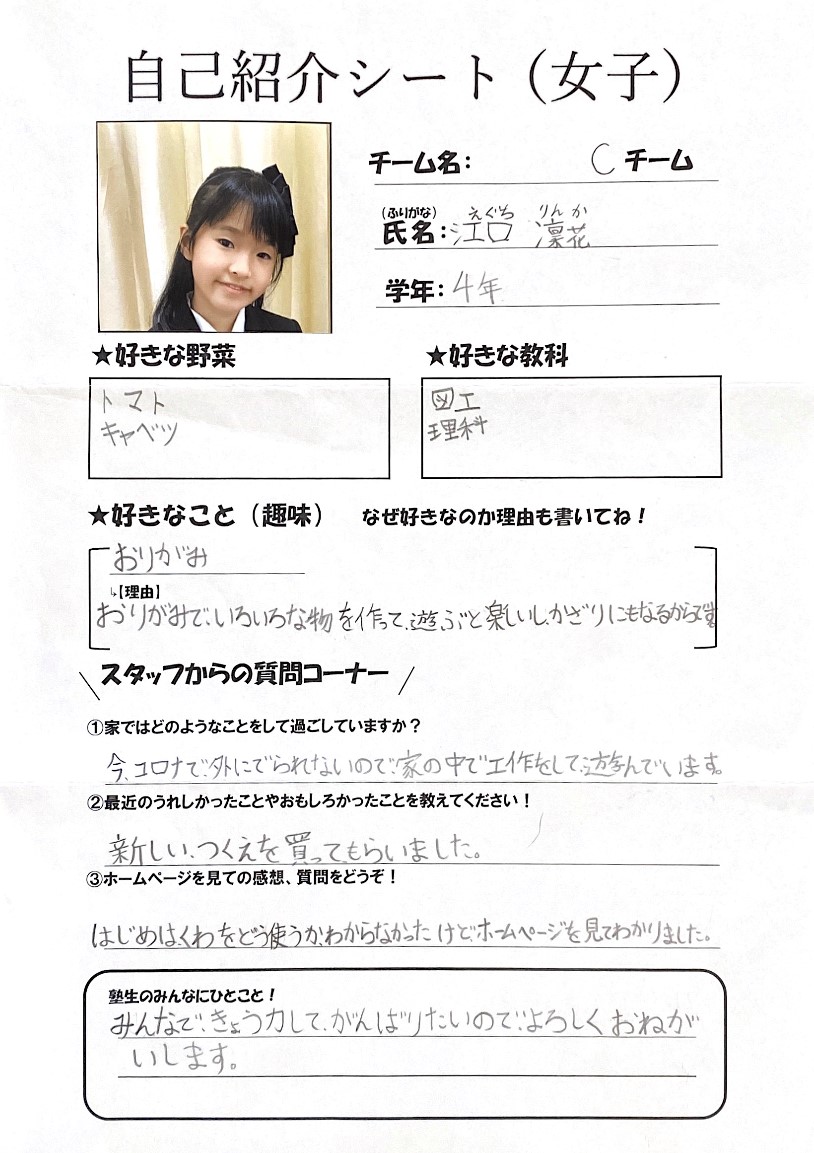 自己紹介シート（女子）
チーム名： C チーム
（ふりがな） えぐち りんか
氏名：江口 凛花
学年：4年
★好きな野菜
トマト
キャベツ
★好きな教科
図工
理科
★好きなこと（趣味） なぜ好きなのか理由も書いてね！
おりがみ
↳【理由】
おりがみで、いろいろな物を作って、遊ぶと楽しいし、かざりにもなるからです。
スタッフからの質問コーナー
①家ではどのようなことをして過ごしていますか？
今、コロナで、外にでられないので、家の中で工作をして、遊んでいます。
②最近のうれしかったことやおもしろかったことを教えてください！
新しい、つくえを買ってもらいました。
③ホームページを見ての感想、質問をどうぞ！
はじめは、くわをどう使うか、わからなかったけど、ホームページを見てわかりました。
塾生のみんなにひとこと！
みんなで、きょう力して、がんばりたいので、よろしくおねが
いします。